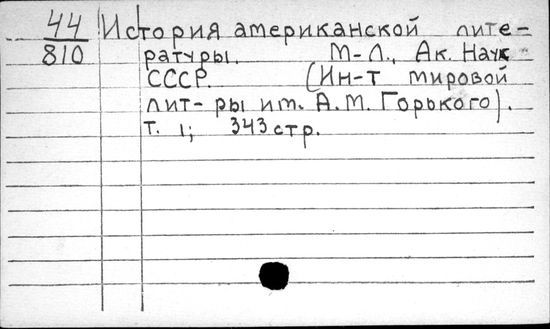 44 История американской лите-
810 ратуры. М-Л., Ак. Наук
СССР. (Ин-т мировой
лит-ры им. А.М. Горького).
т. 1; 343 стр.